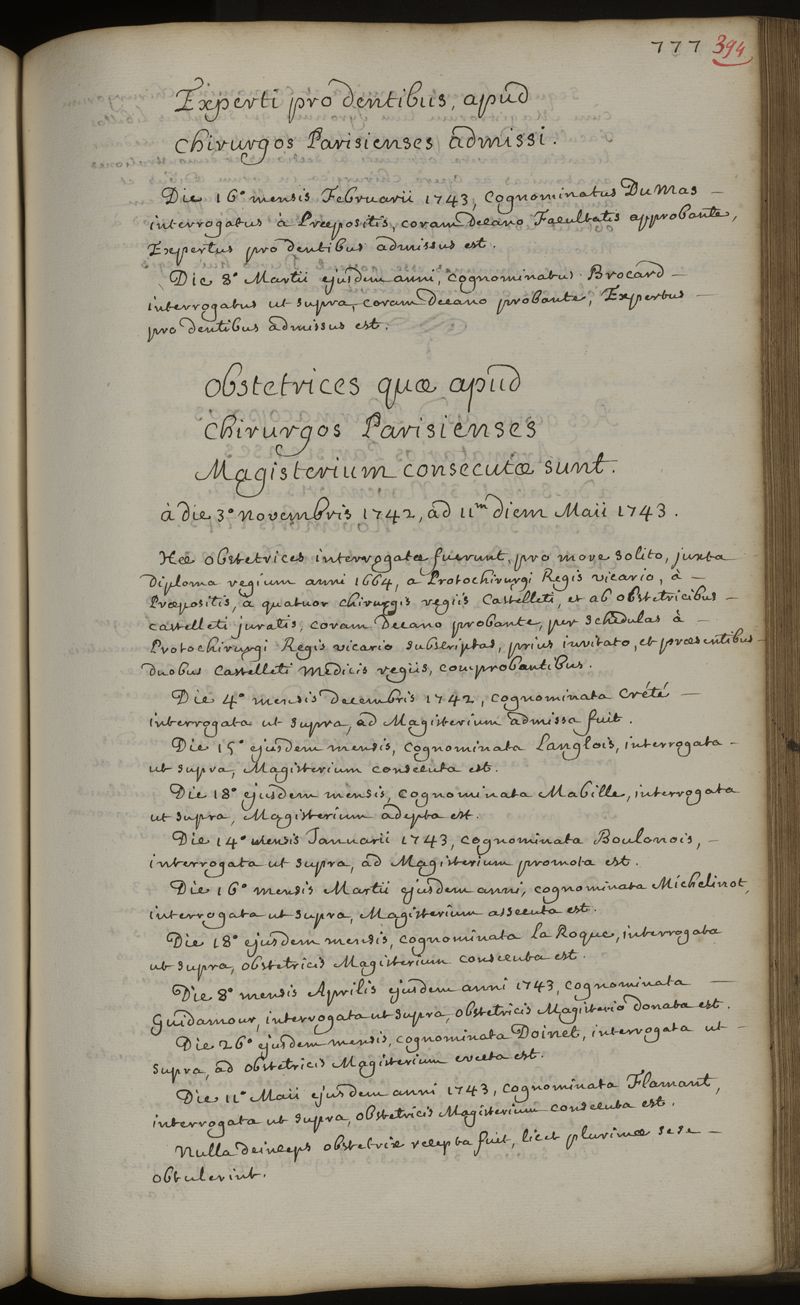 777 394
Experti pro dentibus, apud
Chirurgos Parisienses admissi.
Die 16° mensis Februarii 1743, Cognominatus DuMas —
interrogatus à Præpositis, coram Decano Facultatis approbante,
Expertus pro dentibus admissus est.
Die 8° Martii ejusdem anni, Cognominatus Brocard —
interrogatus ut supra, coram Decano probante, Expertus —
pro dentibus admissus est.
Obstetrices quæ apud
Chirurgos Parisienses
Magisterium consecutæ sunt.
à die 3° novembris 1742, ad 11m diem Maii 1743.
Hæ obstetrices interrogatæ fuerunt, pro more solito, juxta
Diploma regium anni 1664, a Protochirurgi Regis vicario, à —
Præpositis, a quatuor chirurgis regiis Castelleti, et ab obstetricibus —
castelleti juratis, coram Decano probante, per schedulas à —
Protochirurgi Regis vicario subscriptas, prius invitato, et præsentibus
duobus Castelleti Medicis regiis, comprobantibus.
Die 4° mensis decembris 1742, cognominata Crété —
interrogata ut supra, ad Magisterium admissa fuit.
Die 15° ejusdem mensis, cognominata Langlois, interrogata —
ut supra, Magisterium consecuta est.
Die 18° ejusdem mensis, cognominata Mabille, interrogata
ut supra, Magisterium adepta est.
Die 14° mensis Januarii 1743, cognominata Boulonois, —
interrogata ut supra, ad Magisterium promota est.
Die 16° mensis Martii ejusdem anni, cognominata Michelinot,
interrogata ut supra, Magisterium assecuta est.
Die 18° ejusdem mensis, cognominata La Roque, interrogata
ut supra, obstetricis Magisterium consecuta est.
Die 8° mensis Aprilis ejusdem anni 1743, cognominata —
Guidamour, interrogata ut supra, obstetricis Magisterio donata est.
Die 26° ejusdem mensis, cognominata Doinet, interrogata ut —
supra, ad obstetricis Magisterium evecta est.
Die 11° Maii ejusdem anni 1743, cognominata Flamant,
interrogata ut supra, obstetricis Magisterium consecuta est.
Nulla deinceps obstetrix recepta fuit, licet plurimæ sese —
obtulerint.